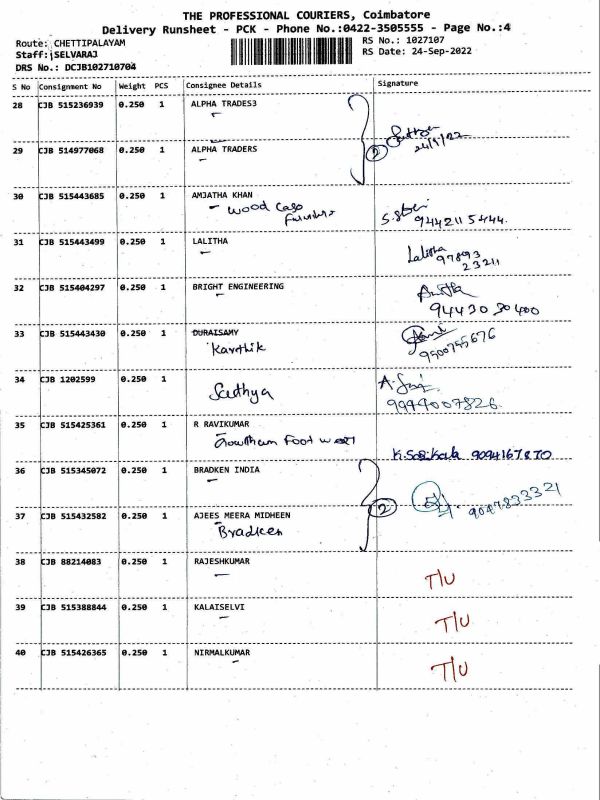 THE PROFESSIONAL COURIERS, Coimbatore
Delivery Runsheet - PCK - Phone No.:0422-3505555 - Page No.:4
Route: CHETTIPALAYAM RS No.: 1027107
Staff: SELVARAJ RS Date: 24-Sep-2022
DRS No.: DCJB102710704
S No Consignment No Weight PCS Consignee Details Signature
28 CJB 515236939 0.250 1 ALPHA TRADES3
29 CJB 514977068 0.250 1 ALPHA TRADERS 2 24/9/22
30 CJB 515443685 0.250 1 AMJATHA KHAN
wood Cape 9442115444.
31 CJB 515443499 0.250 1 LALITHA Lalitha
97893
23211
32 CJB 515404297 0.250 1 BRIGHT ENGINEERING Anitha
94430 30400
33 CJB 515443430 0.250 1 DURAISAMY
Karthik 9500755676
34 CJB 1202599 0.250 1
Sathya 9994007826.
35 CJB 515425361 0.250 1 R RAVIKUMAR
Gowtham Foot wear K.Sasikala 9094167870
36 CJB 515345072 0.250 1 BRADKEN INDIA
2 9047833321
37 CJB 515432582 0.250 1 AJEES MEERA MIDHEEN
Bradken
38 CJB 88214083 0.250 1 RAJESHKUMAR T/U
39 CJB 515388844 0.250 1 KALAISELVI T/U
40 CJB 515426365 0.250 1 NIRMALKUMAR T/U